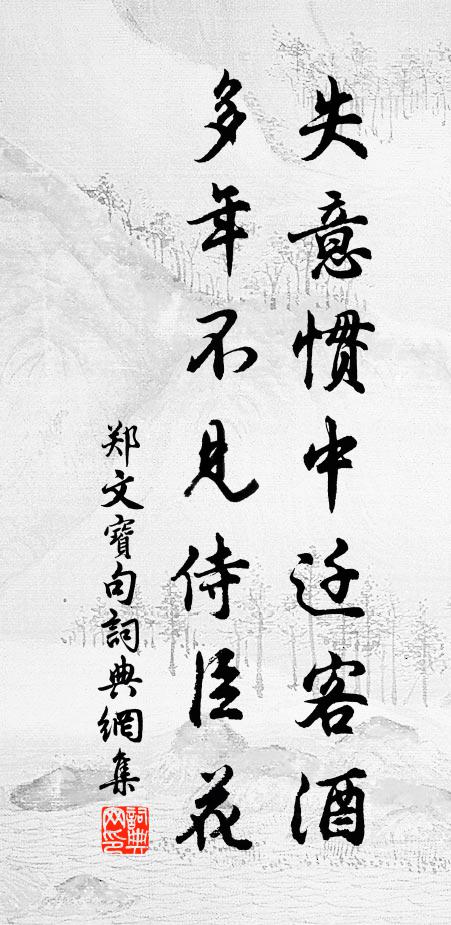 失意惯中迁客酒
多年不见侍臣花
郑文寶句詞典網集
詞典网印